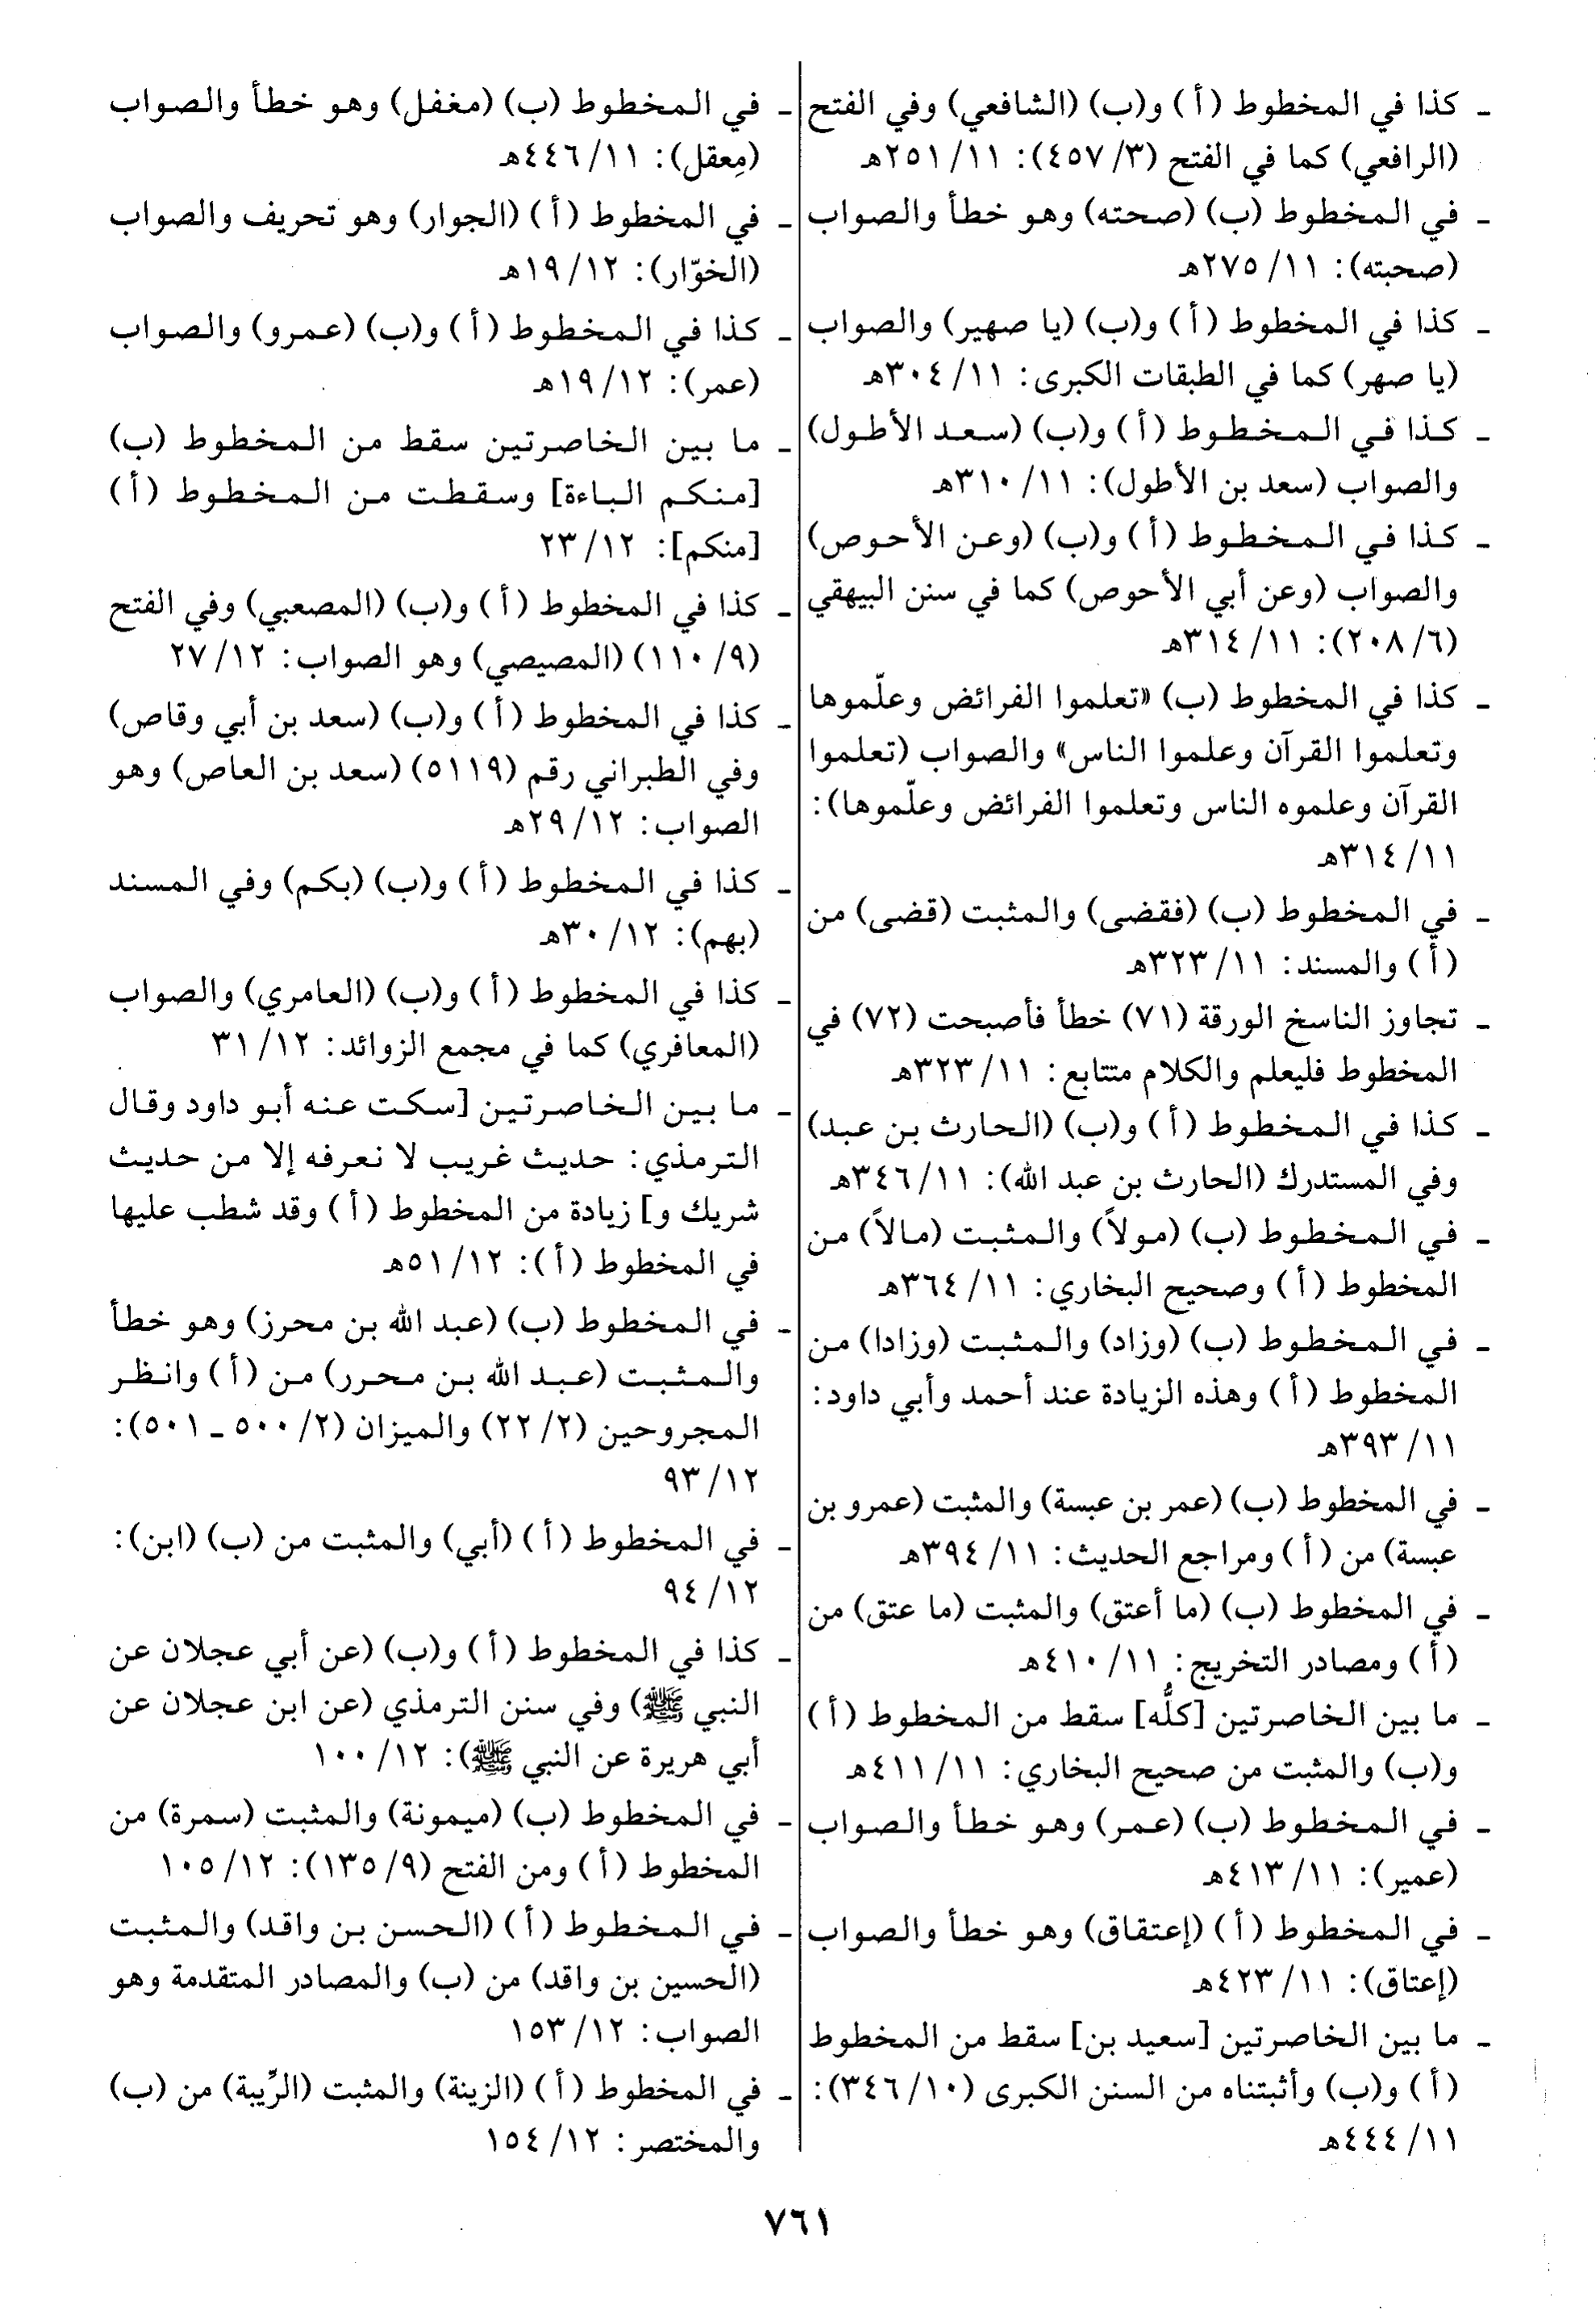 ـ كذا في المخطوط (أ) و(ب) (الشافعي) وفي الفتح
(الرافعي) كما في الفتح (٣/ ٤٥٧): ١١/ ٢٥١هـ
ـ في المخطوط (ب) (صحته) وهو خطأ والصواب
(صحبته): ١١/ ٢٧٥هـ
ـ كذا في المخطوط (أ) و(ب) (يا صهير) والصواب
(يا صهر) كما في الطبقات الكبرى: ١١/ ٣٠٤هـ
ـ كذا في المخطوط (أ) و(ب) (سعد الأطول)
والصواب (سعد بن الأطول): ١١/ ٣١٠هـ
ـ كذا في المخطوط (أ) و(ب) (وعن الأحوص)
والصواب (وعن أبي الأحوص) كما في سنن البيهقي
(٦/ ٢٠٨): ١١/ ٣١٤هـ
ـ كذا في المخطوط (ب) «تعلموا الفرائض وعلّموها
وتعلموا القرآن وعلموا الناس» والصواب (تعلموا
القرآن وعلموه الناس وتعلموا الفرائض وعلّموها):
١١/ ٣١٤هـ
ـ في المخطوط (ب) (فقضى) والمثبت (قضى) من
(أ) والمسند: ١١/ ٣٢٣هـ
ـ تجاوز الناسخ الورقة (٧١) خطأ فأصبحت (٧٢) في
المخطوط فليعلم والكلام متتابع: ١١/ ٣٢٣هـ
ـ كذا في المخطوط (أ) و(ب) (الحارث بن عبد)
وفي المستدرك (الحارث بن عبد الله): ١١/ ٣٤٦هـ
ـ في المخطوط (ب) (مولاً) والمثبت (مالاً) من
المخطوط (أ) وصحيح البخاري: ١١/ ٣٦٤هـ
ـ في المخطوط (ب) (وزاد) والمثبت (وزادا) من
المخطوط (أ) وهذه الزيادة عند أحمد وأبي داود:
١١/ ٣٩٣هـ
ـ في المخطوط (ب) (عمر بن عبسة) والمثبت (عمرو بن
عبسة) من (أ) ومراجع الحديث: ١١/ ٣٩٤هـ
ـ في المخطوط (ب) (ما أعتق) والمثبت (ما عتق) من
(أ) ومصادر التخريج: ١١/ ٤١٠هـ
ـ ما بين الخاصرتين [كلُّه] سقط من المخطوط (أ)
و(ب) والمثبت من صحيح البخاري: ١١/ ٤١١هـ
ـ في المخطوط (ب) (عمر) وهو خطأ والصواب
(عمير): ١١/ ٤١٣هـ
ـ في المخطوط (أ) (إعتقاق) وهو خطأ والصواب
(إعتاق): ١١/ ٤٢٣هـ
ـ ما بين الخاصرتين [سعيد بن] سقط من المخطوط
(أ) و(ب) وأثبتناه من السنن الكبرى (١٠/ ٣٤٦):
١١/ ٤٤٤هـ
ـ في المخطوط (ب) (مغفل) وهو خطأ والصواب
(مِعقل): ١١/ ٤٤٦هـ
ـ في المخطوط (أ) (الجوار) وهو تحريف والصواب
(الخوّار): ١٢/ ١٩هـ
ـ كذا في المخطوط (أ) و(ب) (عمرو) والصواب
(عمر): ١٢/ ١٩هـ
ـ ما بين الخاصرتين سقط من المخطوط (ب)
[منكم الباءة] وسقطت من المخطوط (أ)
[منكم]: ١٢/ ٢٣
ـ كذا في المخطوط (أ) و(ب) (المصعبي) وفي الفتح
(٩/ ١١٠) (المصيصي) وهو الصواب: ١٢/ ٢٧
ـ كذا في المخطوط (أ) و(ب) (سعد بن أبي وقاص)
وفي الطبراني رقم (٥١١٩) (سعد بن العاص) وهو
الصواب: ١٢/ ٢٩هـ
ـ كذا في المخطوط (أ) و(ب) (بكم) وفي المسند
(بهم): ١٢/ ٣٠هـ
ـ كذا في المخطوط (أ) و(ب) (العامري) والصواب
(المعافري) كما في مجمع الزوائد: ١٢/ ٣١
ـ ما بين الخاصرتين [سكت عنه أبو داود وقال
الترمذي: حديث غريب لا نعرفه إلا من حديث
شريك و] زيادة من المخطوط (أ) وقد شطب عليها
في المخطوط (أ): ١٢/ ٥١هـ
ـ في المخطوط (ب) (عبد الله بن محرز) وهو خطأ
والمثبت (عبد الله بن محرر) من (أ) وانظر
المجروحين (٢/ ٢٢) والميزان (٢/ ٥٠٠ ـ ٥٠١):
١٢/ ٩٣
ـ في المخطوط (أ) (أبي) والمثبت من (ب) (ابن):
١٢/ ٩٤
ـ كذا في المخطوط (أ) و(ب) (عن أبي عجلان عن
النبي ﷺ) وفي سنن الترمذي (عن ابن عجلان عن
أبي هريرة عن النبي ﷺ): ١٢/ ١٠٠
ـ في المخطوط (ب) (ميمونة) والمثبت (سمرة) من
المخطوط (أ) ومن الفتح (٩/ ١٣٥): ١٢/ ١٠٥
ـ في المخطوط (أ) (الحسن بن واقد) والمثبت
(الحسين بن واقد) من (ب) والمصادر المتقدمة وهو
الصواب: ١٢/ ١٥٣
ـ في المخطوط (أ) (الزينة) والمثبت (الرِّيبة) من (ب)
والمختصر: ١٢/ ١٥٤
٧٦١